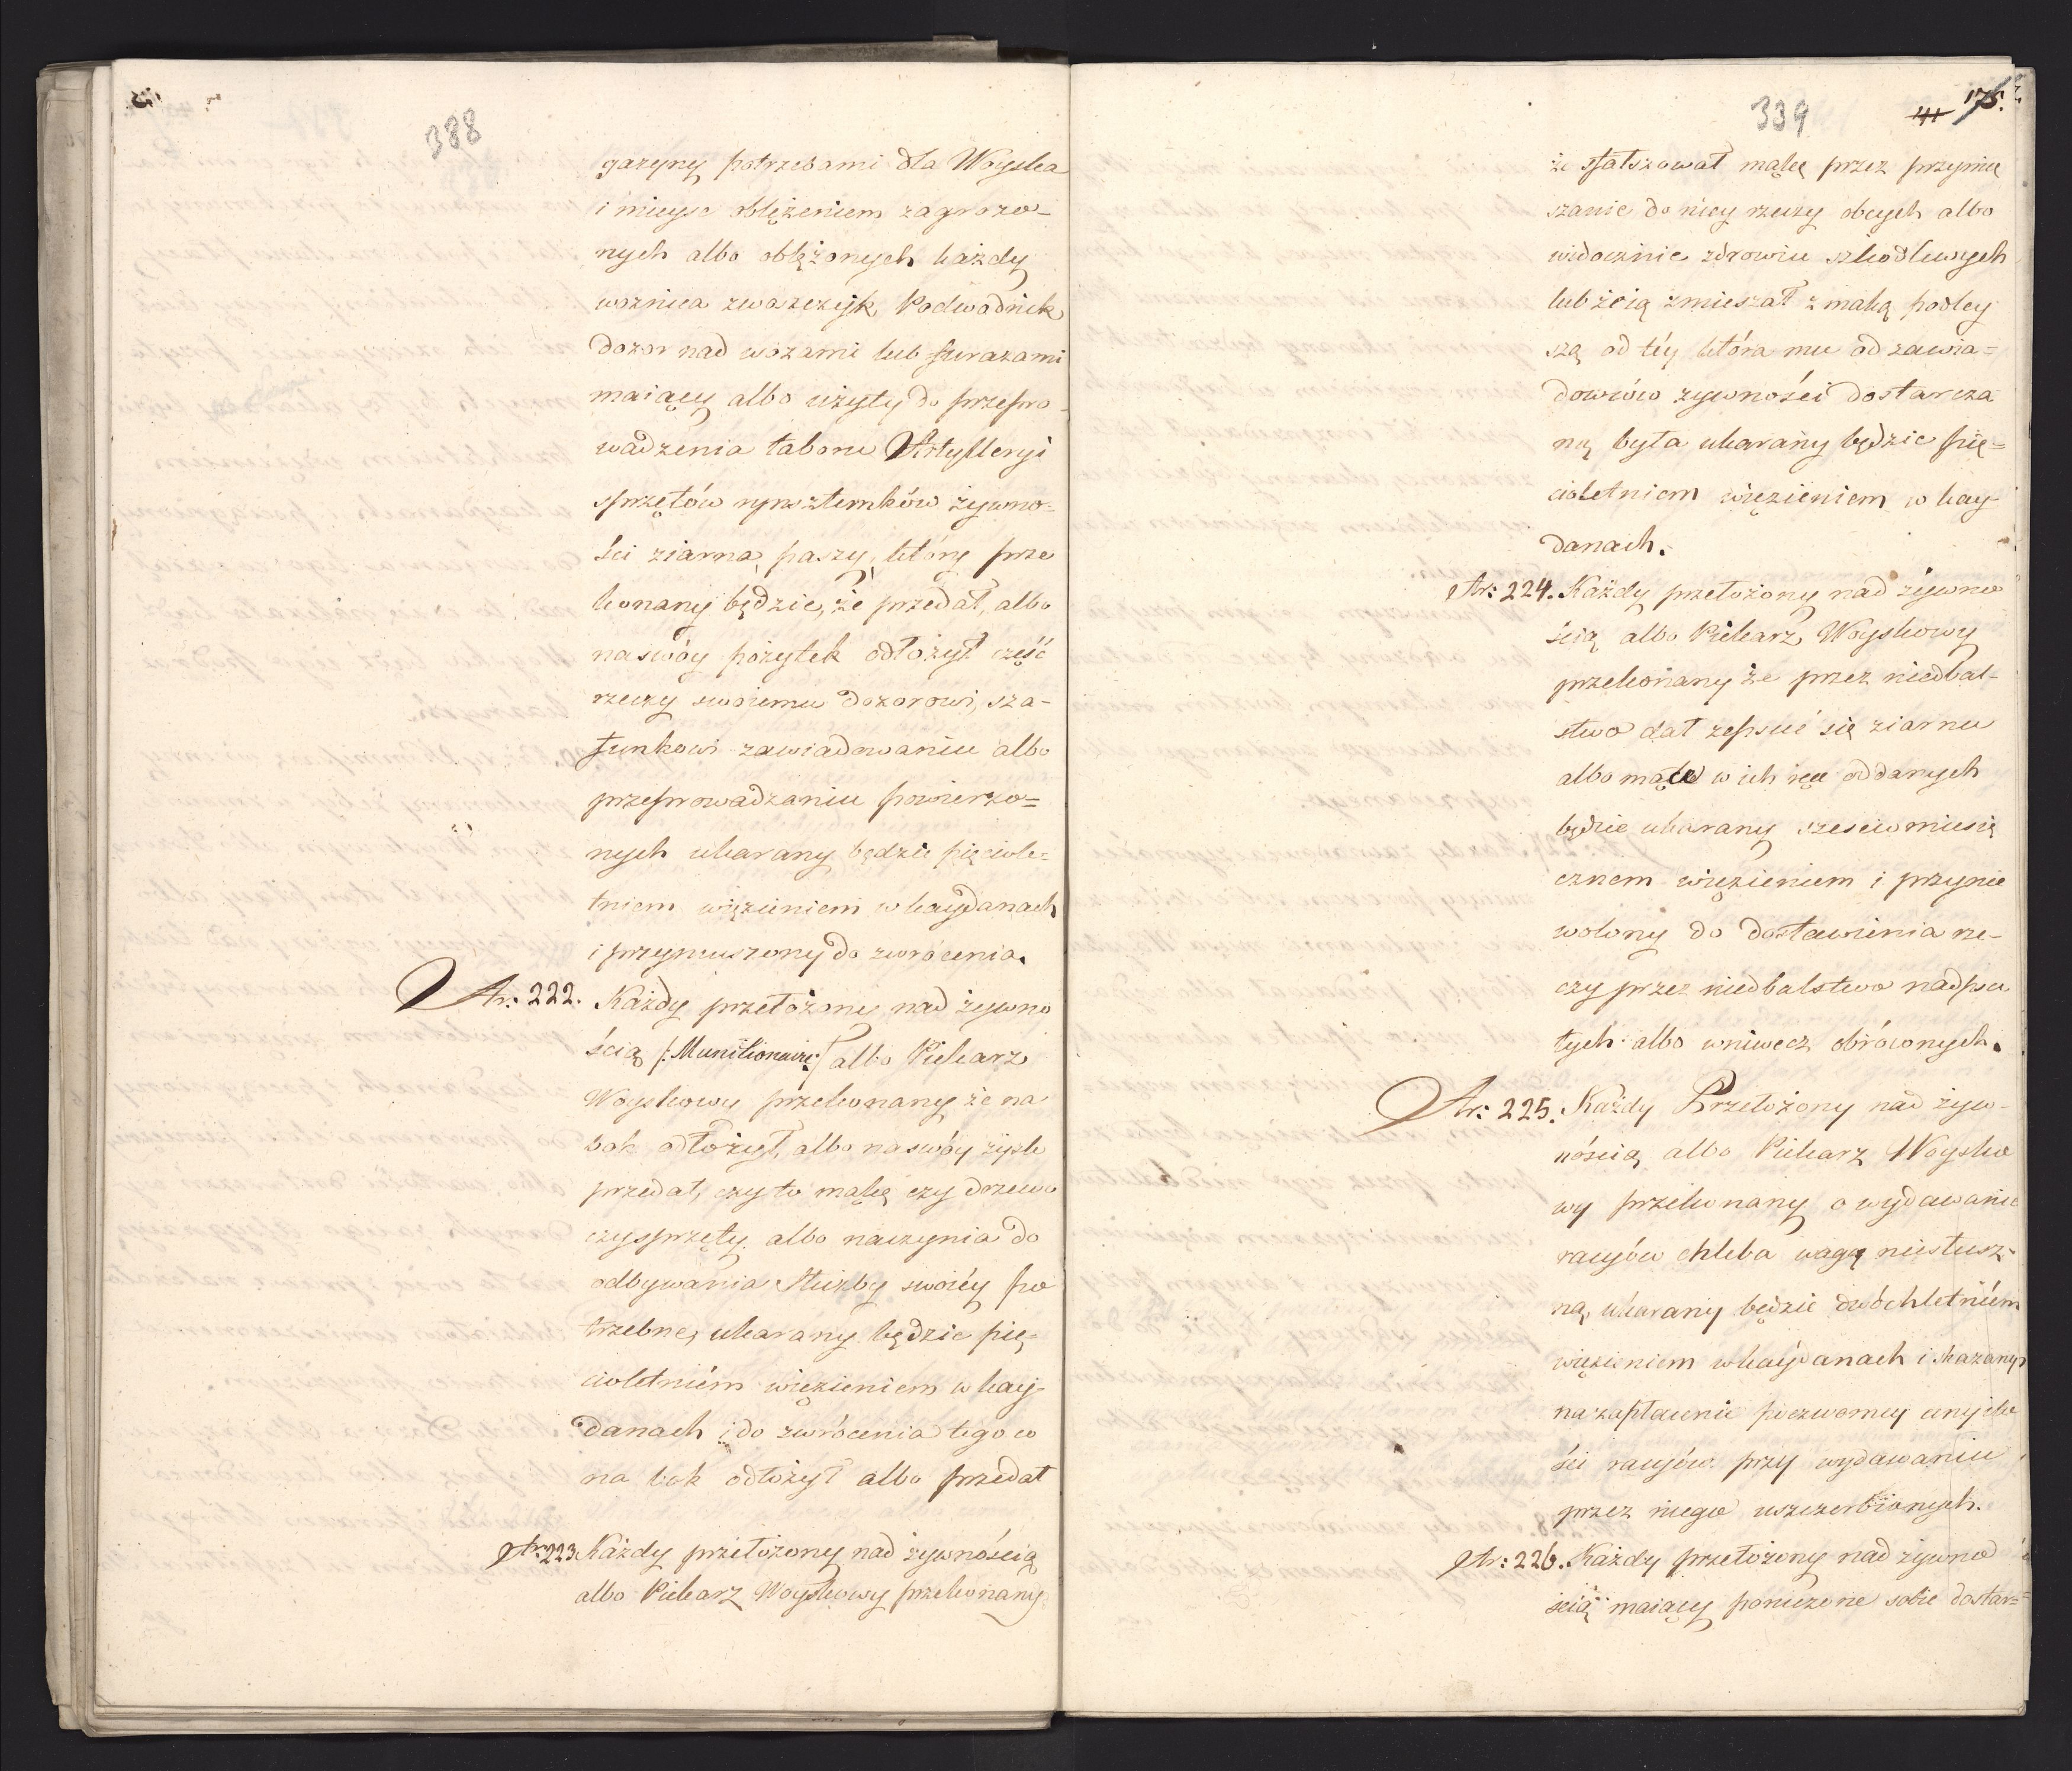 388
gazyny potrzebami dla Woyska
i mieysc oblężeniem zagrożo-
nych albo oblężonych każdy
woznica zwoszczyk, Podwodnik
dozor nad wozami lub furazami
maiący albo użyty do przepro-
wadzenia taboru Artylleryi
sprzętów rynsztunków żywno-
ści ziarna, paszy, który prze
konany będzie, że przedał, albo
na swóy pożytek odłożył część
rzeczy swoiemu dozorowi, sza-
funkowi zawiadowaniu albo
przeprowadzaniu powierzo=
nych ukarany będzie pięciole=
tniem więzieniem w kaydanach
i przymuszony do zwrócenia.
Ar: 222. Każdy przełożony nad żywno
ścią /: Munitionaire :/ albo Piekarz
Woyskowy przekonany że na
bok odłożył, albo na swóy zysk
przedał, czy to mąkę czy drzewo
czy sprzęty albo naczynia do
odbywania służby swoiéy po
trzebne, ukarany będzie pię-
cioletniém więzieniem w kay-
danach i do zwrócenia tego co
na bok odłożył albo przedał
Ar: 223. Każdy przełożony nad żywnością
albo Piekarz Woyskowy przekonany
339
175.
że sfałszował mąkę przez przymię
szanie do niey rzeczy obcych albo
widocznie zdrowiu szkodliwych
lub żeią zmieszał z mąką podley
szą od téy która mu od zawia=
dowców żywności dostarcza
ną była ukarany będzie pię=
cioletniem więzieniem w kay-
danach.
Ar: 224. Każdy przełożony nad żywno
ścią albo Piekarz Woyskowy
przekonany że przez niedbal-
stwo dał zepsuć się ziarnu
albo mące w ich ręce oddanych
będzie ukarany sześciomiesię
cznem więzieniem i przynie
wolony do dostawienia rze-
czy przez niedbalstwo nadpsu
tych albo wniwecz obróconych.
Ar: 225. Każdy Przełożony nad żyw-
nością albo Piekarz Woysko
wy przekonany o wydawanie
racyów chleba wagą niesłusz-
ną, ukarany będzie dwóchletniém
więzieniem w kaydanach i skazany
na zapłacenie poczwórney
ści racyów przy wydawaniu
przez niego uszczerbionych.
Ar: 226. Każdy przełożony nad żywno
ścią maiący poruczone sobie dostar=